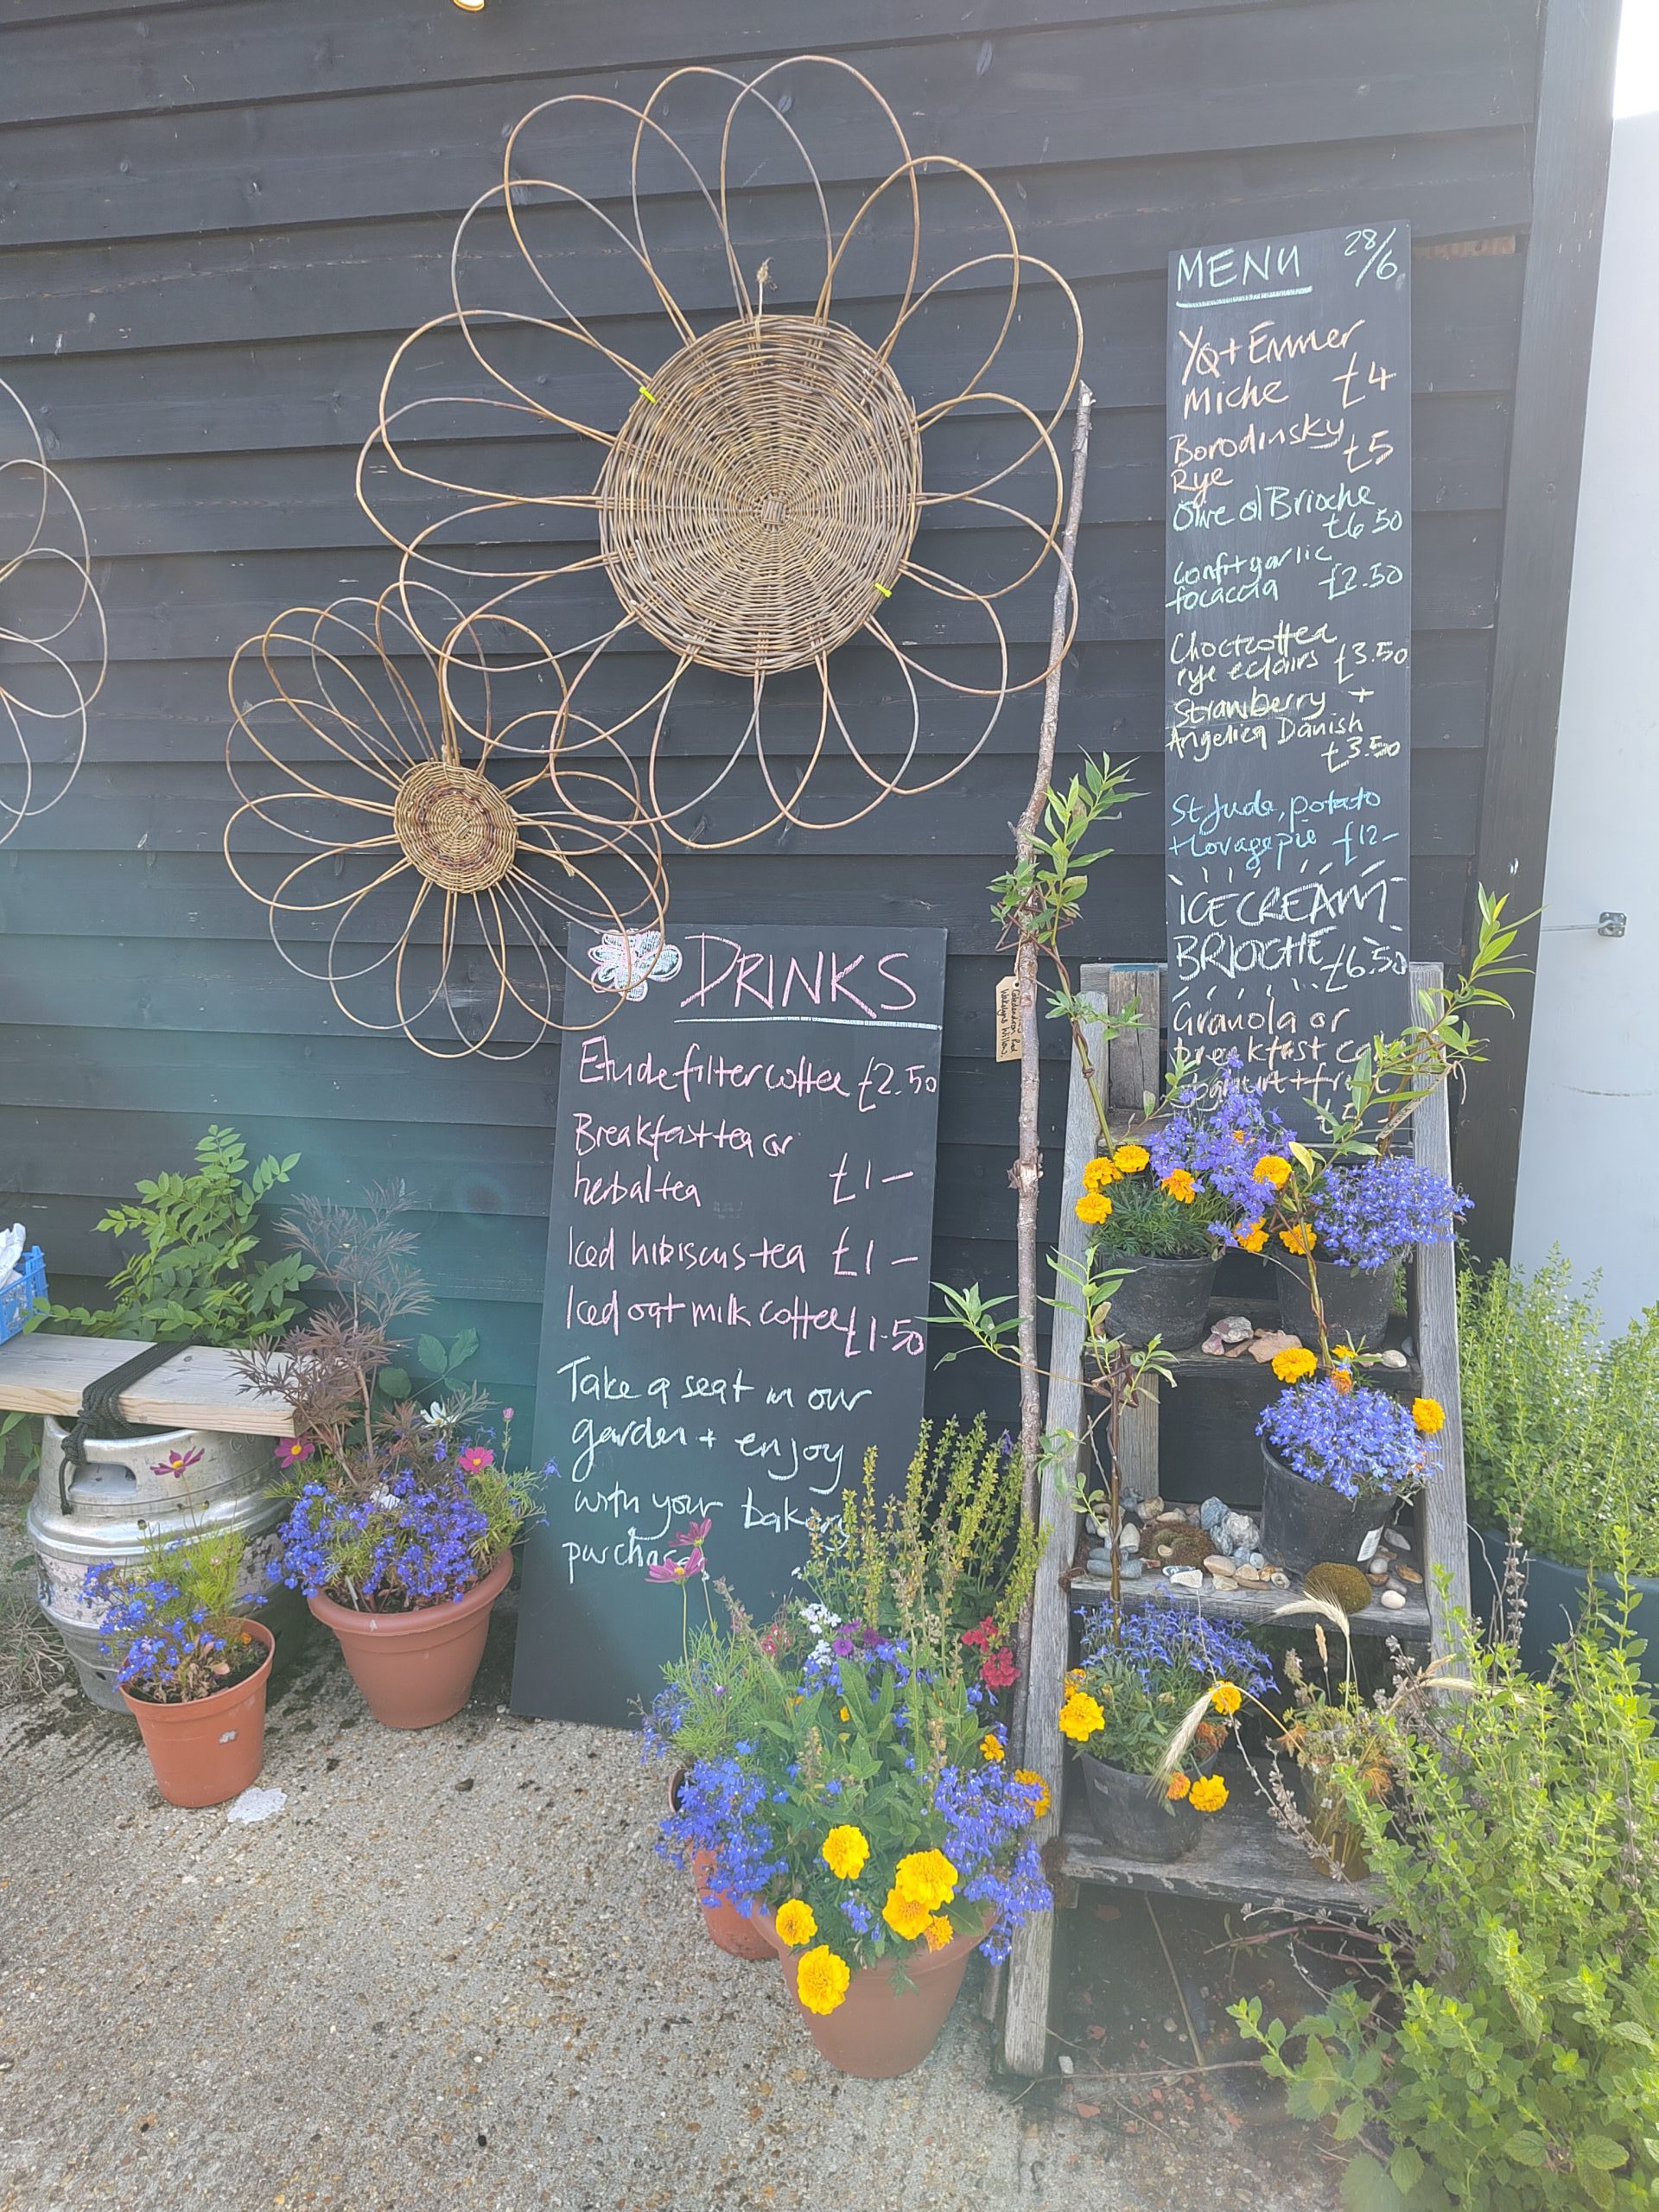 MENU 28/6
YQ + Emmer
Miche £4
Borodinsky
Rye £5
Olive oil Brioche
£6.50
Confit garlic
focaccia £2.50
Choc + coffee
rye eclairs £3.50
Strawberry +
Angelica Danish
£3.50
St Jude, potato
+ lovage pie £12-
ICE CREAM
BRIOCHE £6.50
Granola or
breakfast
yoghurt + fruit
DRINKS
Etude filter coffee £2.50
Breakfast tea or
herbal tea £1-
Iced hibiscus tea £1-
Iced oat milk coffee £1.50
Take a seat in our
garden + enjoy
with your bakery
purchase